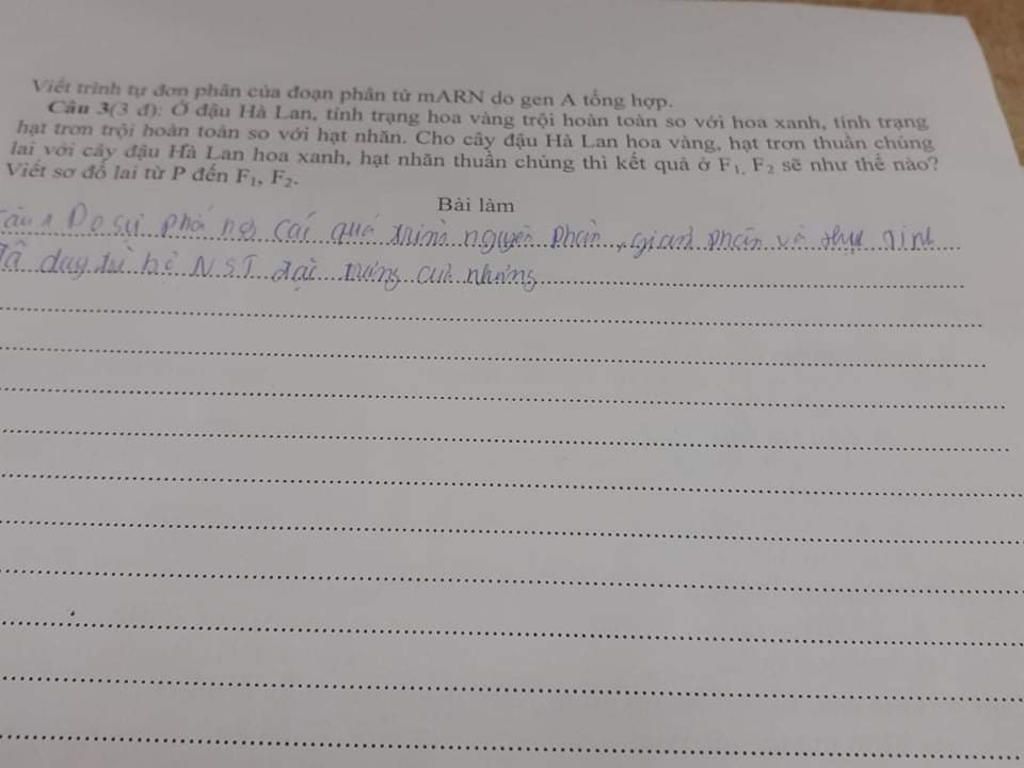 Viết trình tự đơn phân của đoạn phân tử mARN do gen A tổng hợp.
Câu 3(3 đ): Ở đậu Hà Lan, tính trạng hoa vàng trội hoàn toàn so với hoa xanh, tính trạng
hạt trơn trội hoàn toàn so với hạt nhăn. Cho cây đậu Hà Lan hoa vàng, hạt trơn thuần chủng
lai với cây đậu Hà Lan hoa xanh, hạt nhăn thuần chủng thì kết quả ở F1, F2 sẽ như thế nào?
Viết sơ đồ lai từ P đến F1, F2.
Bài làm
Do sự phối hợp các quá trình nguyên phân, giảm phân và thụ tinh
duy trì bộ NST đặc trưng của những